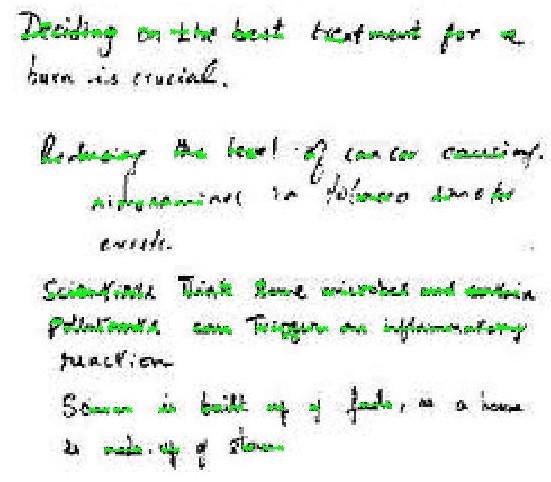 Deciding on the best treatment for a
burn is crucial.
Reducing the level of cancer causing
nitrosamines in tobacco smoke
exists.
Scientists Think some microbes and certain
pollutants can Trigger an inflammatory
reaction
Science is built up of facts, as a house
is made up of stones